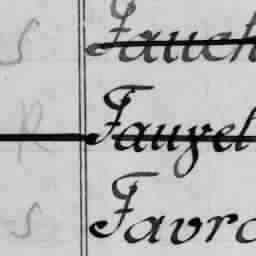 S Fauch
R Fauzel
S Favro